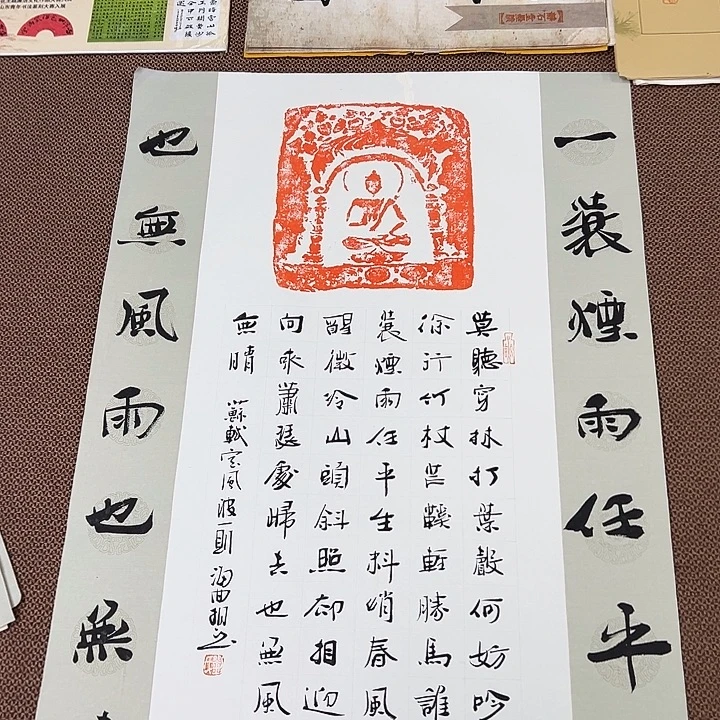 一蓑煙雨任平
莫聽穿林打葉聲何妨吟
徐行竹杖芒鞵輕勝馬誰
蓑煙雨任平生料峭春風
醒微冷山頭斜照却相迎
向來蕭瑟處歸去也無風
無晴
蘇軾定風波一則
也無風雨也無